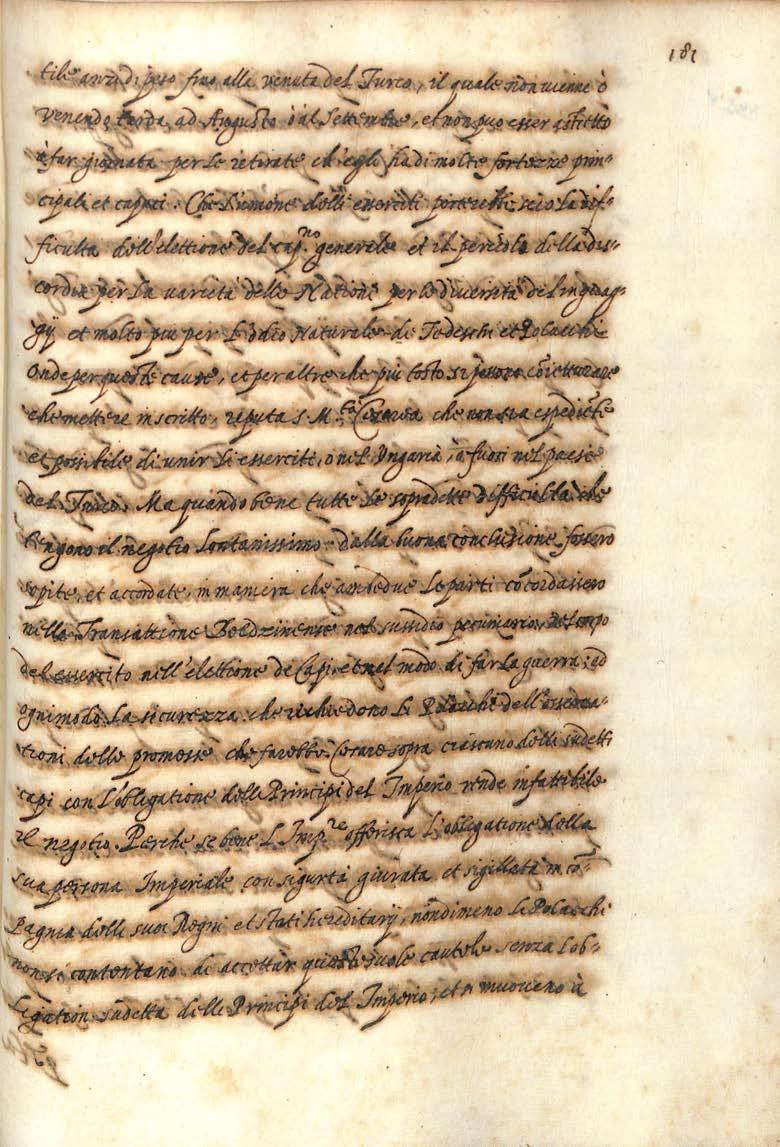 181
tile anzi di peso fino alla venuta del Turco, il quale non viene ò
venendo tarda ad Augusto ò al Settembre, et non può esser astretto
à far giornata per le retirate ch'egli hà di molte fortezze prin-
cipali et capaci. Che l'unione delli exerciti porterebbe seco la dif-
ficulta dell'elettione del cap.no generale et il pericolo della dis-
cordia per la varietà delle Nationi per la diversità de linguag-
gij et molto piu per l'odio Naturale di Todeschi et Polacchi
Onde per queste cause, et per altre che più tosto si possono cõietturare
che mettere in scritto, reputa S. M.tà Cesarea che non sia espediẽte
et possibile di unir li esserciti, o nel Ungaria, ò fuori nel paese
del Turco. Ma quando bene tutte le sopradette difficultà che
tengono il negotio lontanissimo dalla buona conclusione fossero
sopite, et accordate, in maniera che ambedue le parti cõcordassero
nella Transattione Bedzinense nel sussidio pecuniario, del corpo
del essercito nell'elettione de Capi, et nel modo di far la guerra; ad
ogni modo la sicurezza che richiedono li Polacchi dell'osserva-
tioni delle promesse che farebbe Cesare sopra ciascuno delli sudetti
capi con l'obligatione delli Principi del Imperio rende infattibile
il negotio. Perche se bene l'Imp.re offerisca l'obligatione della
sua persona Imperiale con sigurtà giurata et sigillata in cõ-
pagnia delli suoi Regni et stati hereditarij, nõdimeno li Polacchi
non si contentano di accettar queste sole cautele senza l'ob-
ligation sudetta delli Principi del Imperio, et si muoveno à